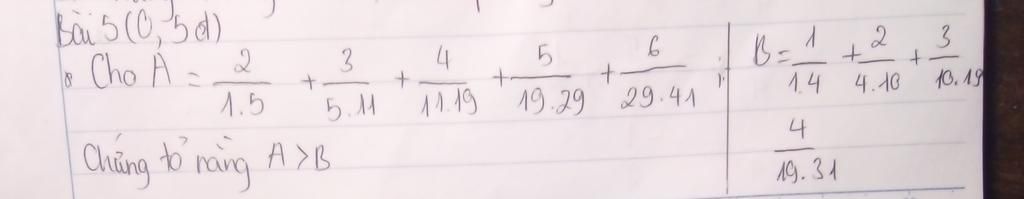 Bài 5 (0,5đ)
Cho A = 2/1.5 + 3/5.11 + 4/11.19 + 5/19.29 + 6/29.41 ;
B = 1/1.4 + 2/4.10 + 3/10.19
4/19.31
Chứng tỏ rằng A > B